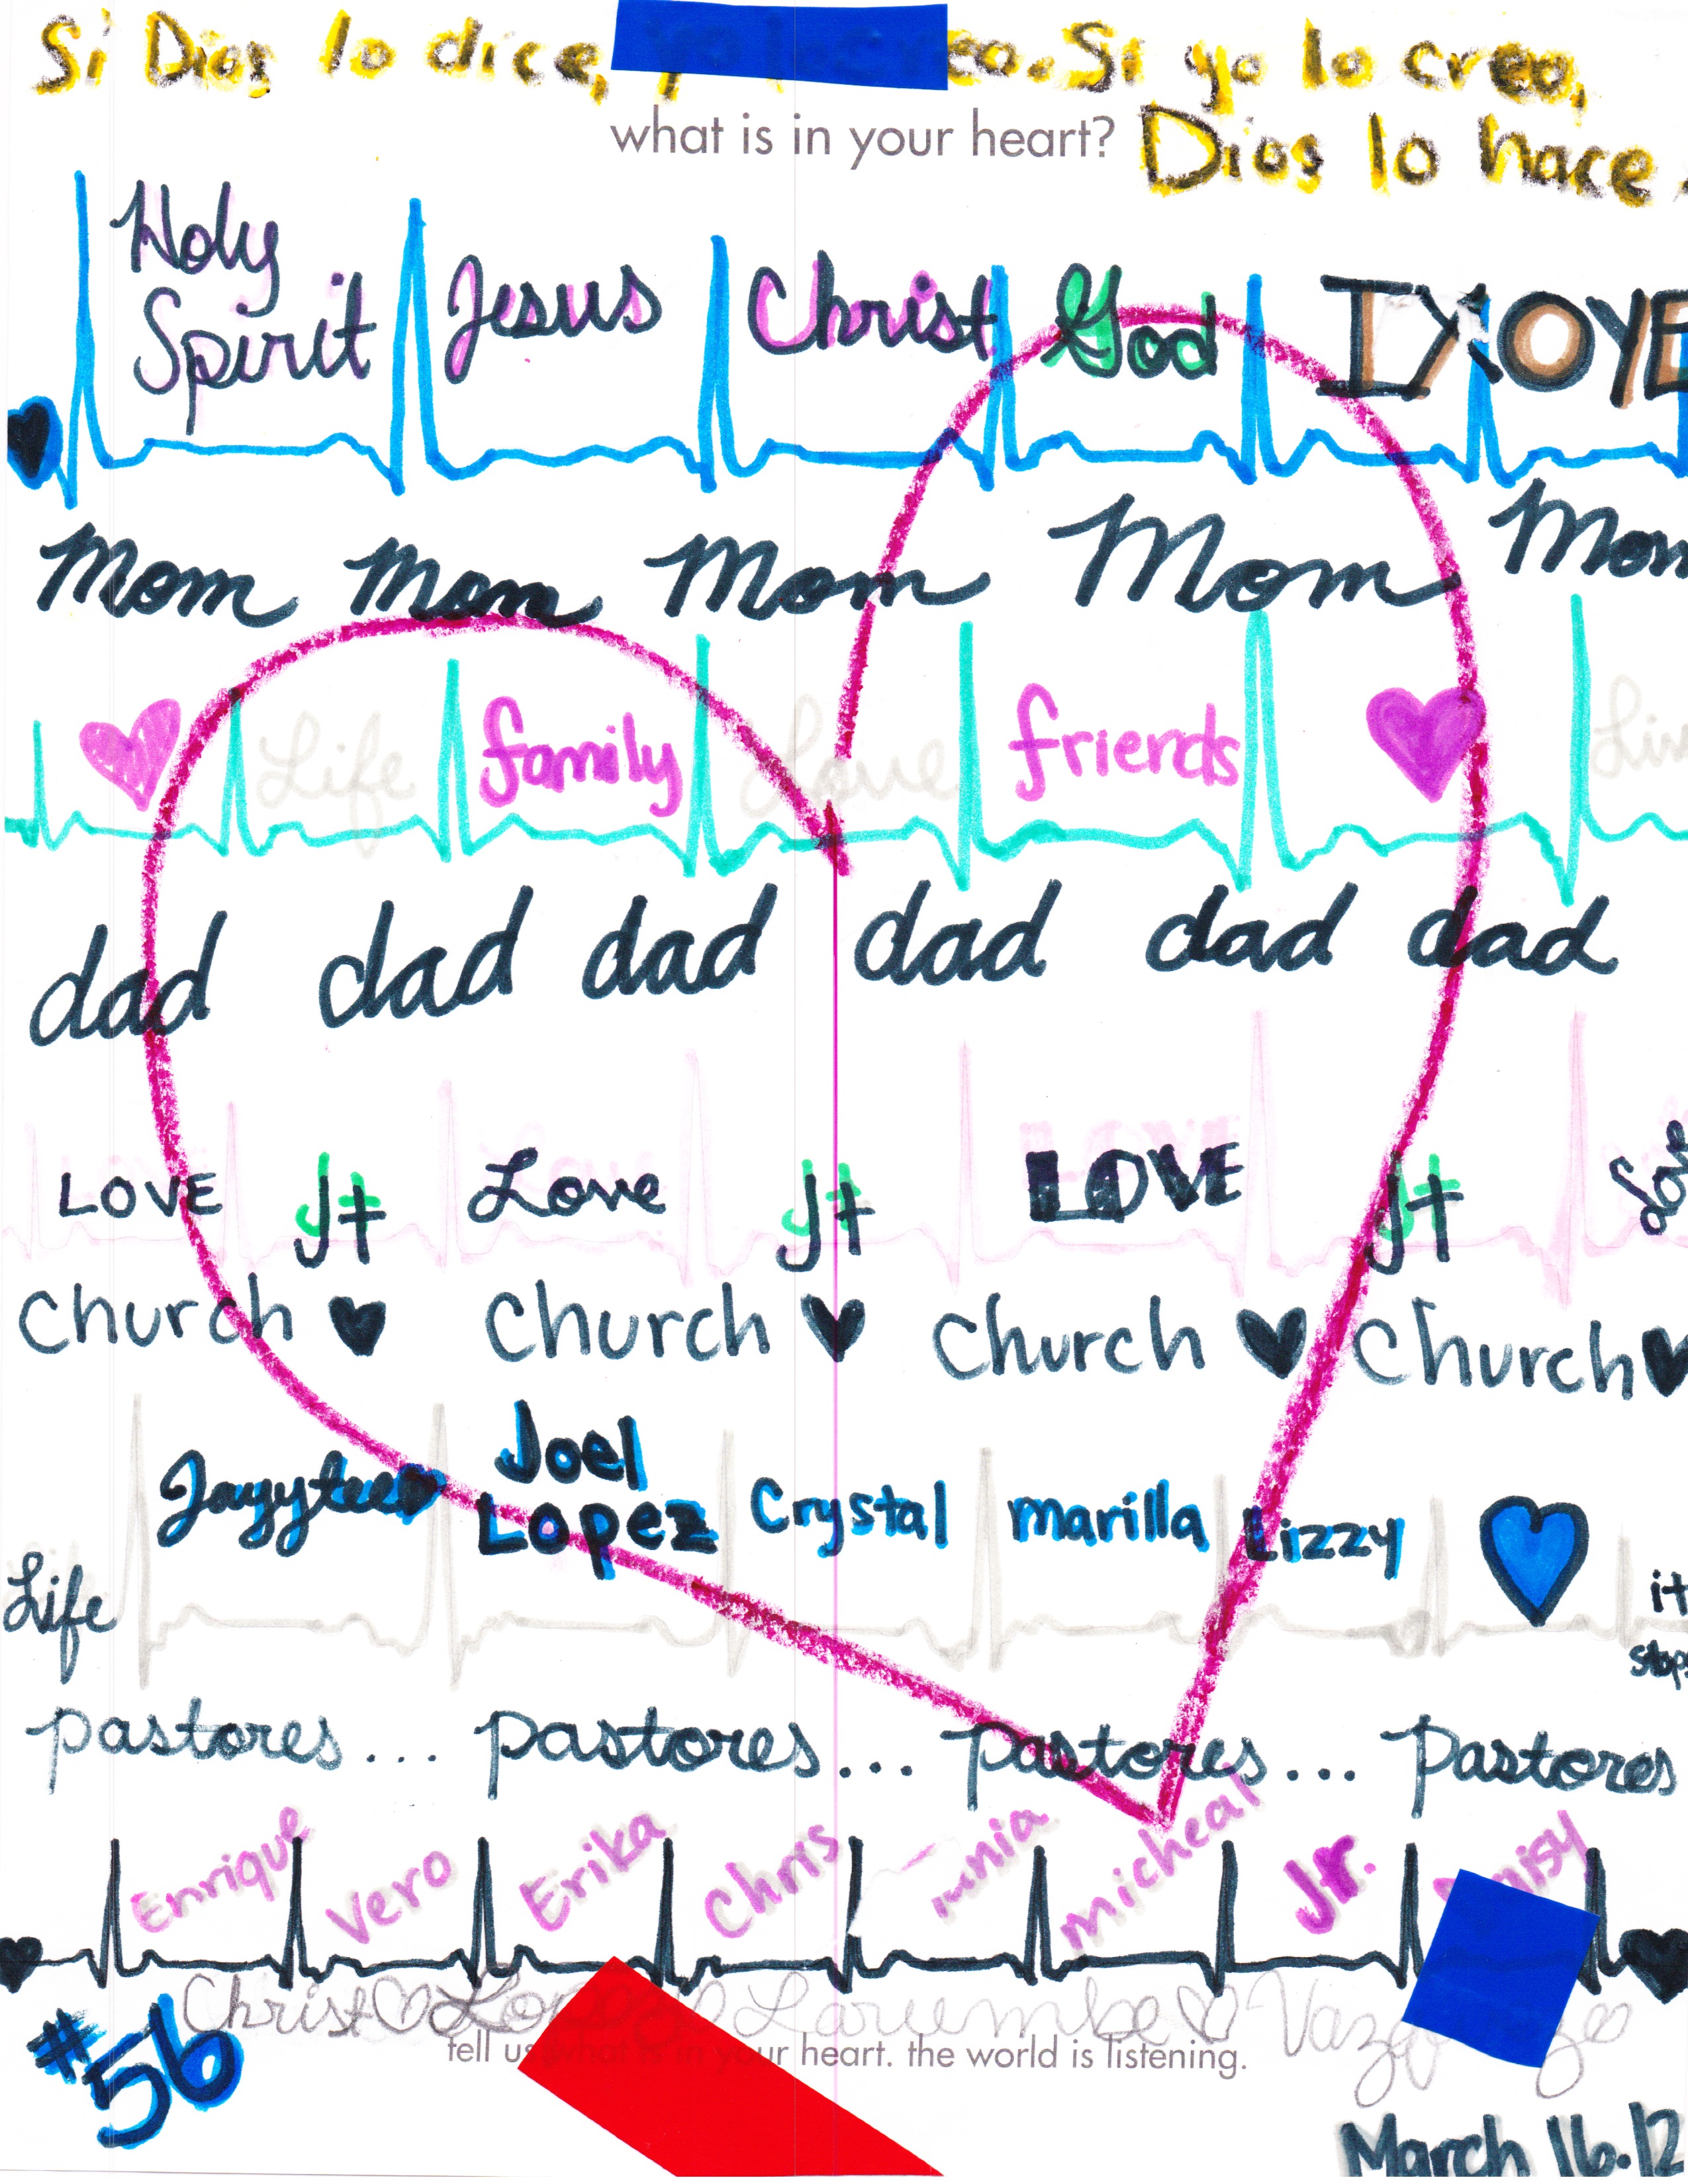 Si Dios lo dice, Si yo lo creo,
what is in your heart?
Dios lo hace.
Holy Spirit Jesus Christ God IXOYE
Mom Mom Mom Mom Mom
Life family Love friends
dad dad dad dad dad dad
LOVE Jt Love Jt LOVE Jt Love
Church Church Church Church
Jayytee Joel Lopez Crystal marilla Lizzy
Life it stops
pastores... pastores... pastores... Pastores
Enrique Vero Erika Chris micheal Jr.
Christ Larumbe
#56
tell us what is in your heart. the world is listening.
March 16.12